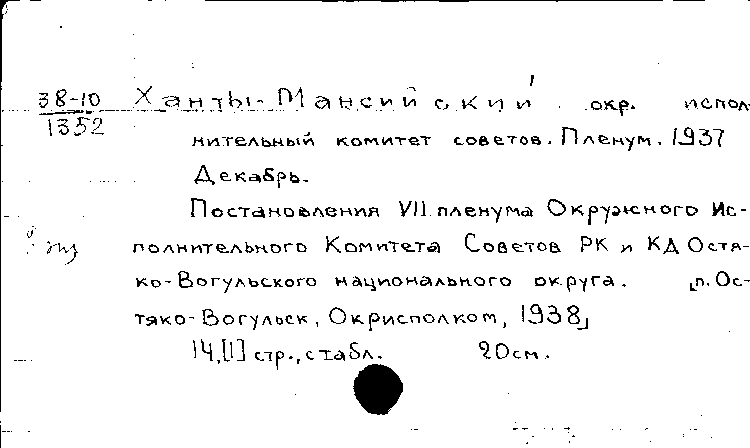 38-10 Ханты-Мансийский окр. испол-
1352
нительный комитет советов. Пленум. 1937
Декабрь.
Постановления VII пленума Окружного Ис-
полнительного Комитета Советов РК и КД Остя-
ко-Вогульского национального округа. [п. Ос-
тяко-Вогульск, Окрисполком, 1938]
14,[1] стр., с табл. 20см.